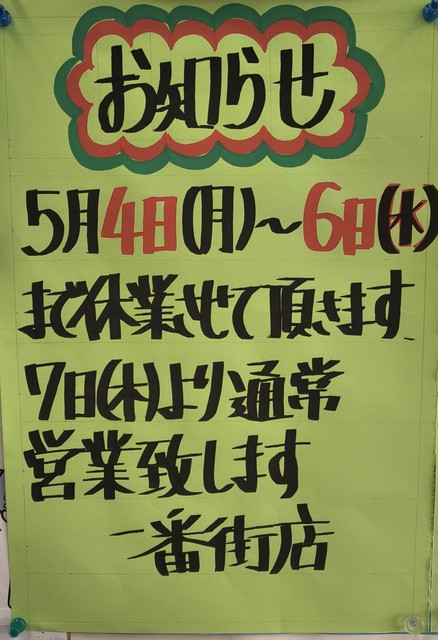 お知らせ
5月4日(月)～6日(水)
まで休業せて頂きます.
7日(木)より通常
営業致します
一番街店